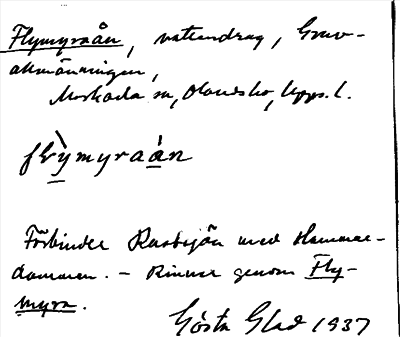 Flymyraån, vattendrag, Gruv-
allmänningen,
Morkarla sn, Olandsho, Upps. l.
flỳmyraån
Förbinder Rastsjön med Hammar-
dammen. – Rinner genom Fly-
myra.
Gösta Glad 1937